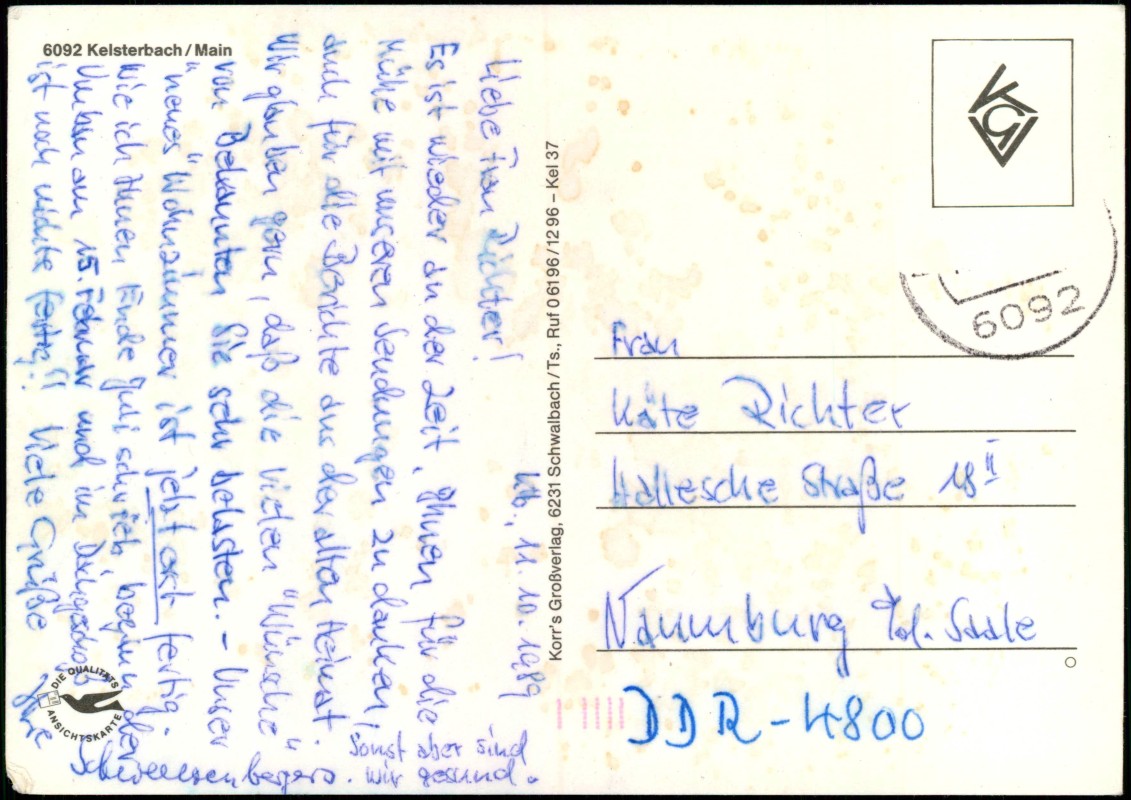 6092 Kelsterbach / Main
Kb., 11. 10. 1989
Liebe Frau Richter!
Es ist wieder an der Zeit, Ihnen für die
Mühe mit unseren Sendungen zu danken,
auch für alle Berichte aus der alten Heimat.
Wir glauben gern, daß die vielen "Wünsche"
von Bekannten Sie sehr belasten. - Unser
"neues" Wohnzimmer ist jetzt erst fertig.
Wie ich Ihnen Ende Juni schrieb, begann der
Umbau am 15. Februar und im Dachgeschoß
ist noch nichts fertig!! Viele Grüße
Ihre
sonst aber sind
wir gesund.
Korr's Großverlag, 6231 Schwalbach / Ts., Ruf 0 61 96 / 12 96 – Kel 37
DIE QUALITÄTS
ANSICHTSKARTE
KGV
6092
Frau
Käte Richter
Hallesche Straße 18 II
Naumburg /d. Saale
DDR - 4800